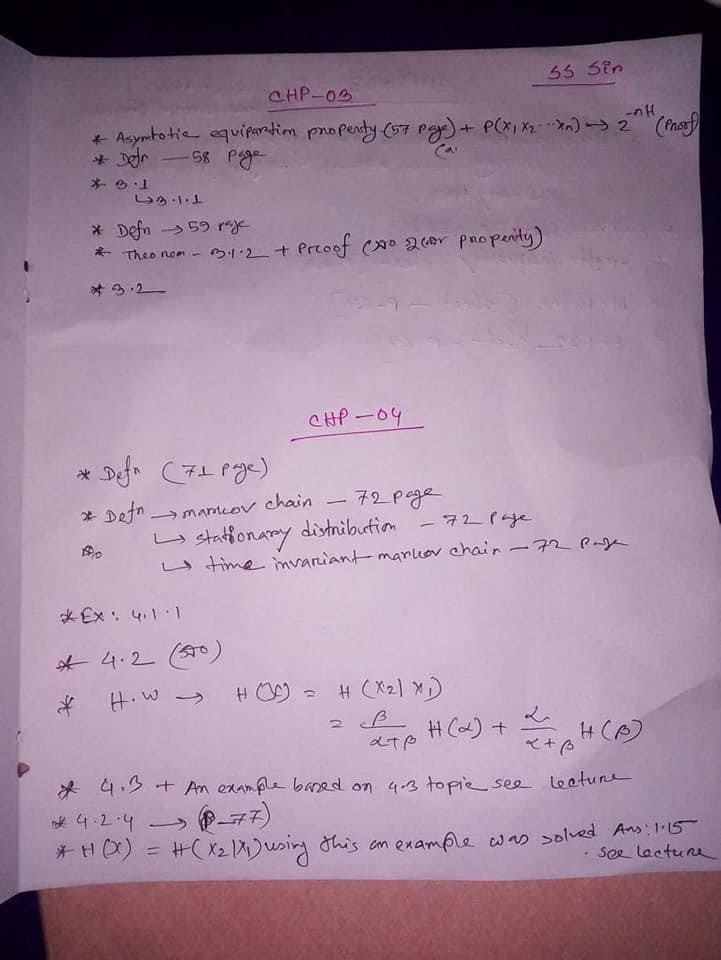 SS Sir
CHP-03
* Asymtotic equipartion property (57 page) + P(x₁, x₂...xₙ) → 2^-nH (Proof)
* Defn — 58 page
* 3.1
↳ 3.1.1
* Defn → 59 page
* Theorem - 3.1.2 + Proof property)
* 3.2
CHP-04
* Defn (71 page)
* Defn → markov chain - 72 page
↳ stationary distribution - 72 page
↳ time invariant markov chain - 72 page
* Ex: 4.1.1
* 4.2
* H.W → H(X) = H(X₂|X₁)
= β/(α+β) H(α) + α/(α+β) H(β)
* 4.3 + An example based on 4.3 topic see lecture
* 4.2.4 → (P-77)
* H(X) = H(X₂|X₁) using this an example was solved Ans: 1.15
. see lecture